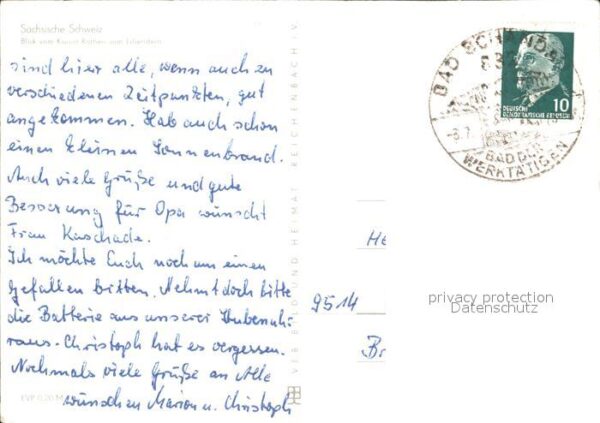 Sächsische Schweiz
Blick vom Kurort Rathen zum Lilienstein
sind hier alle, wenn auch zu
verschiedenen Zeitpunkten, gut
angekommen. Hab auch schon
einen kleinen Sonnenbrand.
Auch viele Grüße und gute
Besserung für Opa wünscht
Frau Kaschade.
Ich möchte Euch noch um einen
Gefallen bitten. Nehmt doch bitte
die Batterie aus unserer Stubenuhr
raus. Christoph hat es vergessen.
Nochmals viele Grüße an Alle
wünschen Marion u. Christoph
EVP 0,20 M
VEB BILD UND HEIMAT REICHENBACH I. V.
BAD SCHANDAU
BAD DER
WERKTÄTIGEN
10
DEUTSCHE
DEMOKRATISCHE REPUBLIK
He
9514
Br
privacy protection
Datenschutz